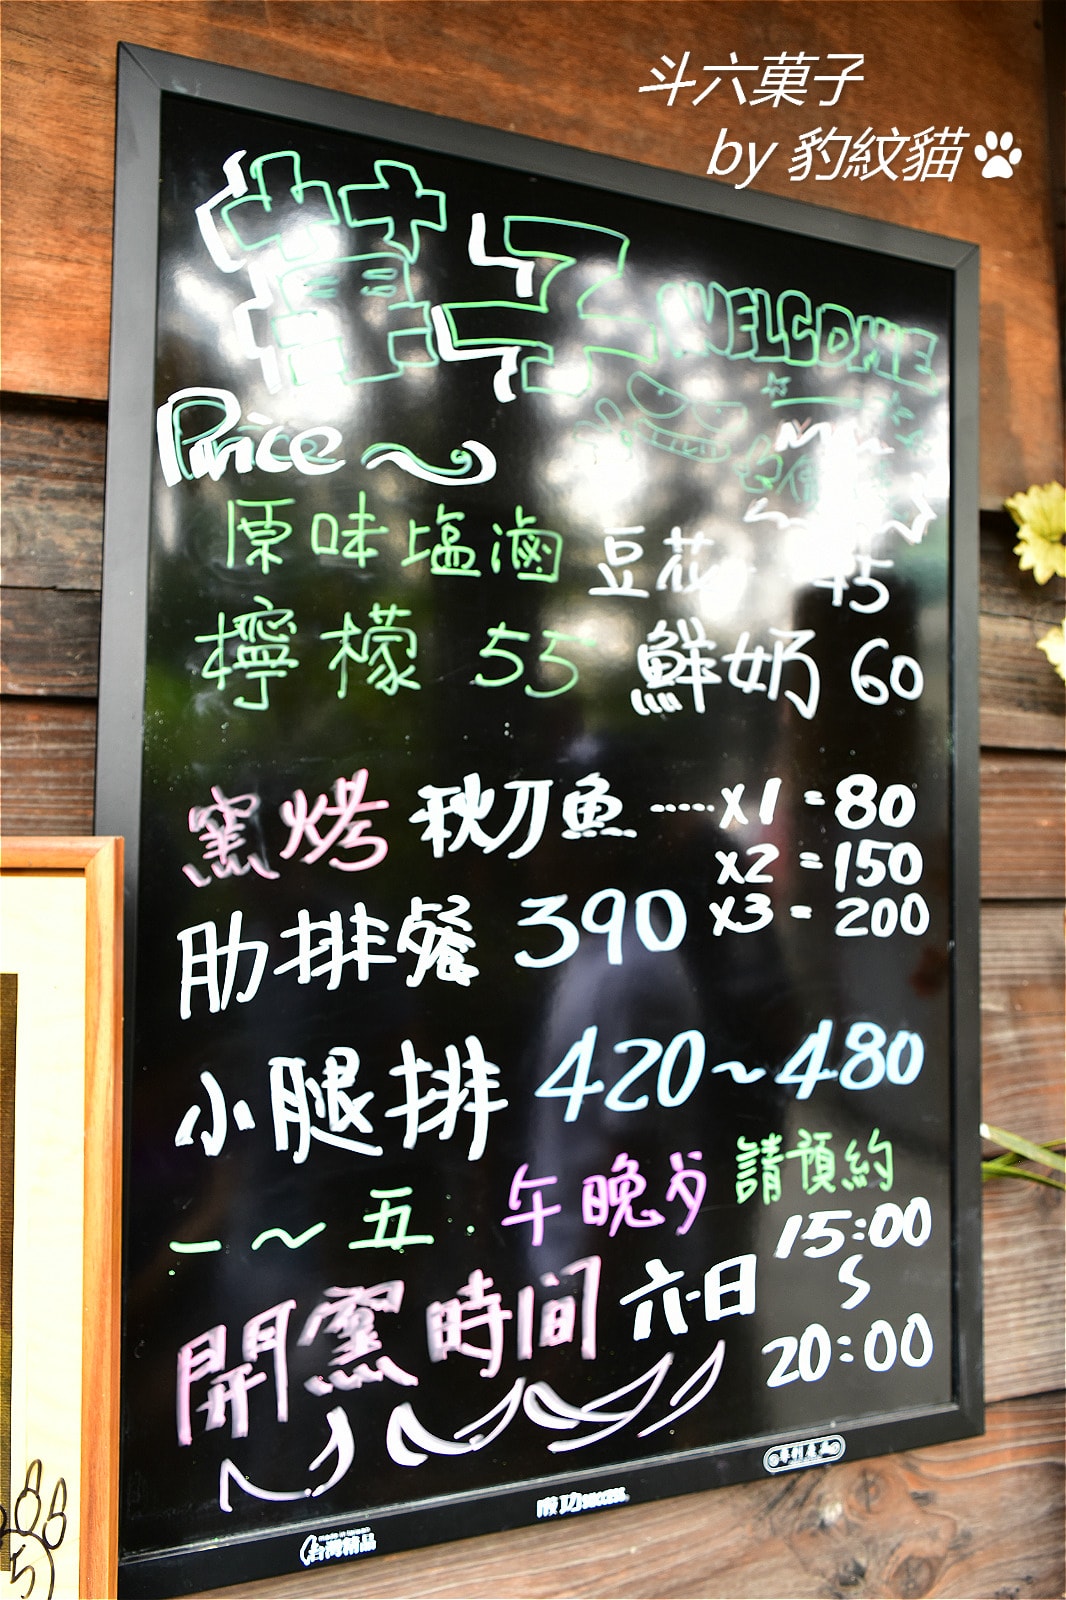 斗六菓子
by 豹紋貓
菓子
WELCOME
Price～
原味塩滷 豆花 45
檸檬 55 鮮奶 60
窯烤 秋刀魚 ⋯⋯ x1 = 80
x2 = 150
x3 = 200
肋排餐 390
小腿排 420～480
一～五 . 午晚歺 請預約
開窯時間 六.日 15:00
20:00
成功 success
made in taiwan
台灣精品